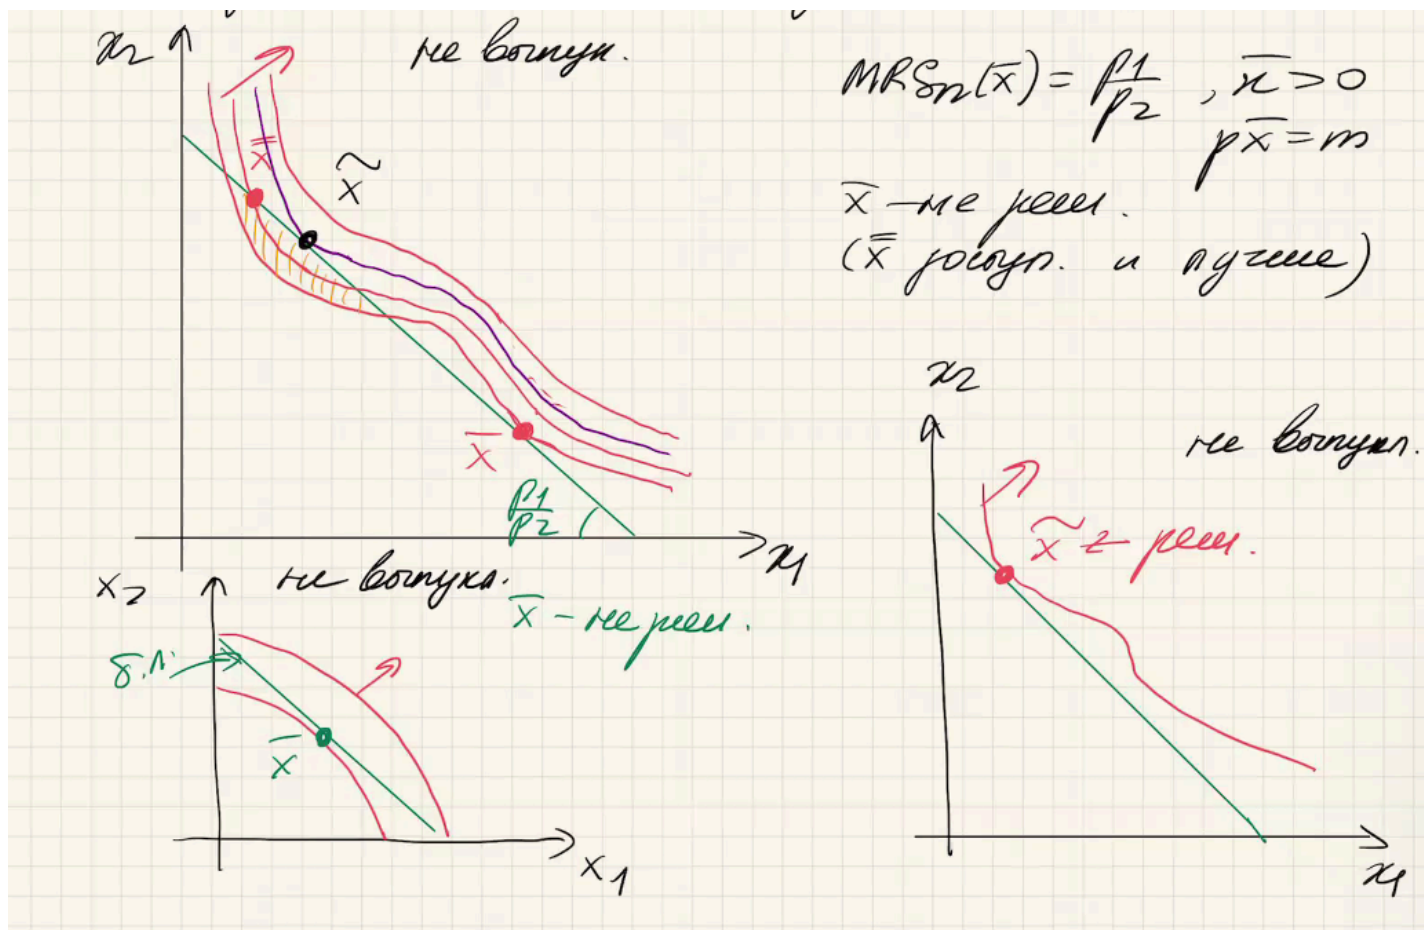 x₂
не выпук.
x̿
x̃
x̄
p1/p2
x₁
MRS₁₂(x̄) = p1/p2 , x̄ > 0
px̄ = m
x̄ – не реш.
(x̿ доступ. и лучше)
x₂
не выпукл.
x̄ – не реш.
б.л.
x̄
x₁
x₂
не выпукл.
x̃ ← реш.
x₁